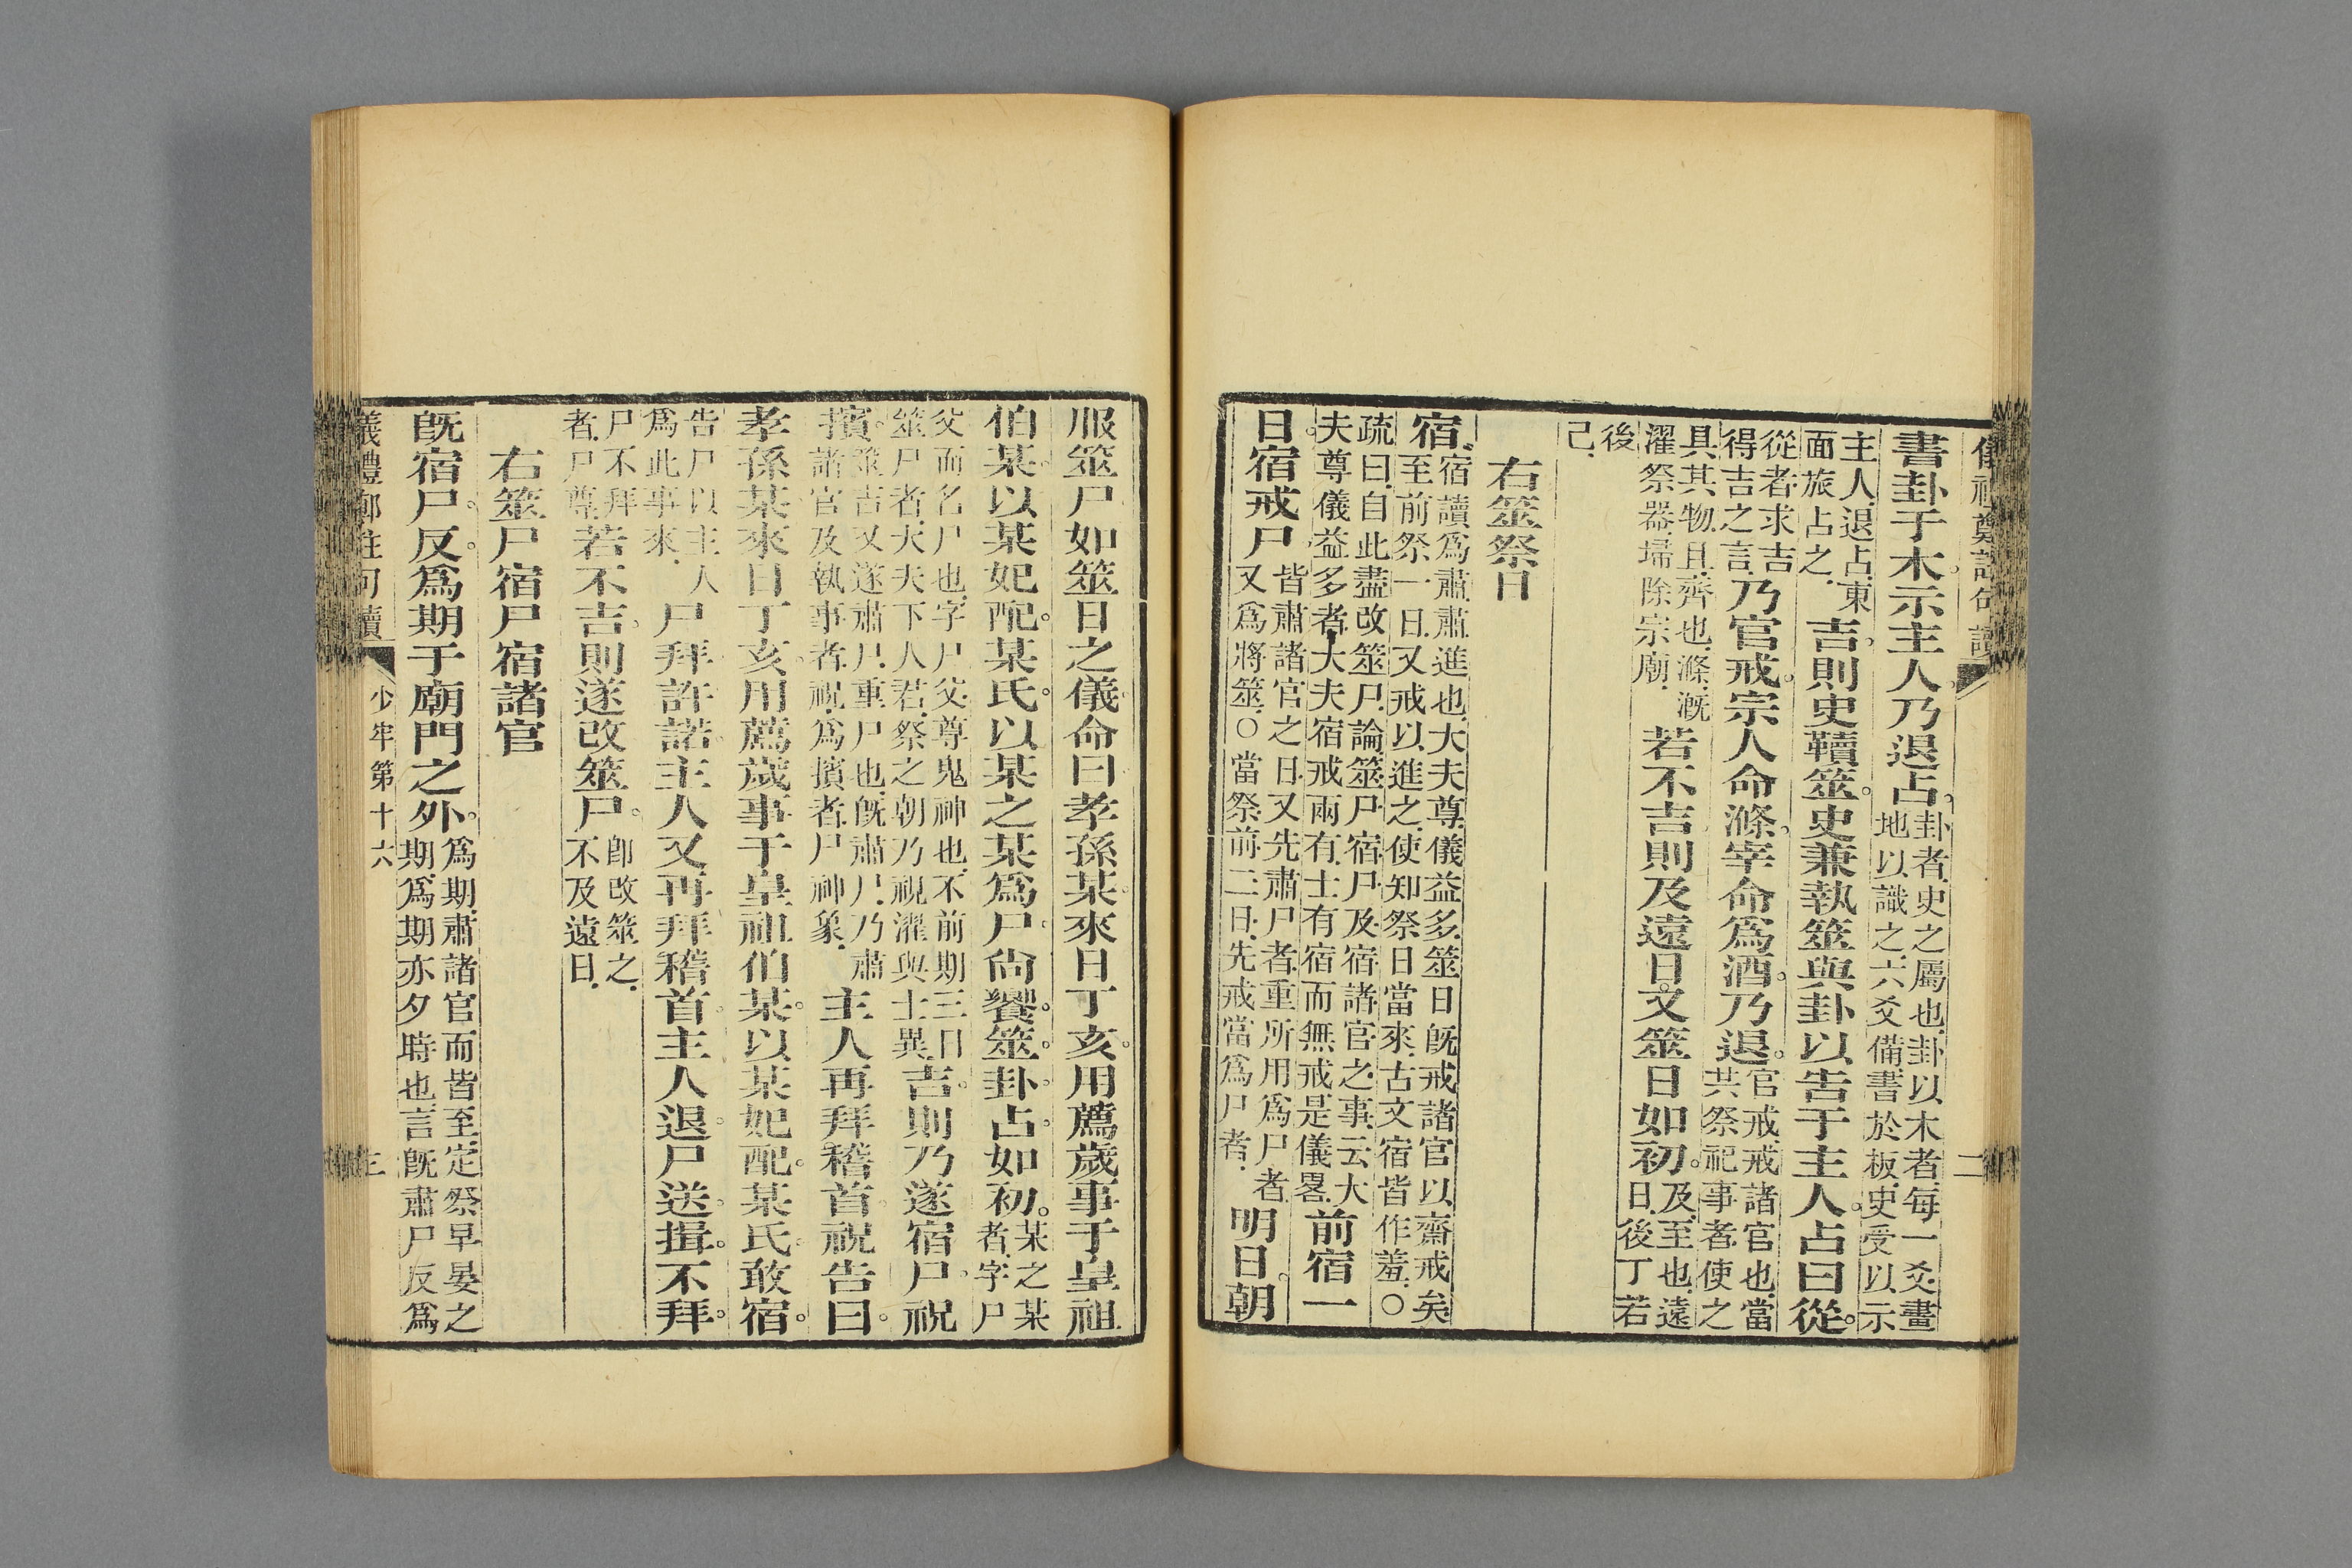 儀禮鄭註句讀
二
書卦于木。示主人。乃退占。卦者史之屬也卦以木者每一爻畫地以識之六爻備書於板史受以示
主人退占東面旅占之吉。則史韇筮。史兼執筮與卦以告于主人。占曰從。
從者求吉得吉之言乃官戒。宗人命滌。宰命為酒。乃退。官戒戒諸官也當共祭祀事者使之
具其物且齊也滌漑濯祭器埽除宗廟若不吉則及遠日。又筮日如初。及至也遠日後丁若
後己
右筮祭日
宿。宿讀爲肅肅進也大夫尊儀益多筮日旣戒諸官以齋戒矣至前祭一日又戒以進之使知祭日當來古文宿皆作羞○
疏曰自此盡改筮尸論筮尸宿尸及宿諸官之事云大夫尊儀益多者大夫宿戒兩有士有宿而無戒是儀畧前宿一
日。宿戒尸皆肅諸官之日又先肅尸者重所用爲尸者又爲將筮○當祭前二日先戒當爲尸者明日。朝
服筮尸如筮日之儀命曰孝孫某來日丁亥。用薦歲事于皇祖
伯某。以某妃配。某氏。以某之某爲尸。尙饗。筮。卦。占。如初。某之某者字尸
父而名尸也字尸父尊鬼神也不前期三日筮尸者大夫下人君祭之朝乃視濯與士異吉。則乃遂宿尸。祝
擯。筮吉又遂肅尸重尸也旣肅尸乃肅諸官及執事者祝爲擯者尸神象主人再拜稽首。祝告曰。
孝孫某。來日丁亥。用薦歲事于皇祖伯某。以某妃配。某氏。敢宿。
告尸以主人爲此事來尸拜許諾。主人又再拜稽首。主人退。尸送。揖。不拜。
尸不拜者尸尊若不吉。則遂改筮尸。卽改筮之不及遠日
右筮尸宿尸宿諸官
旣宿尸。反。爲期于廟門之外。爲期肅諸官而皆至定祭早晏之期爲期亦夕時也言旣肅尸反爲
儀禮鄭註句讀
少牢第十六
三